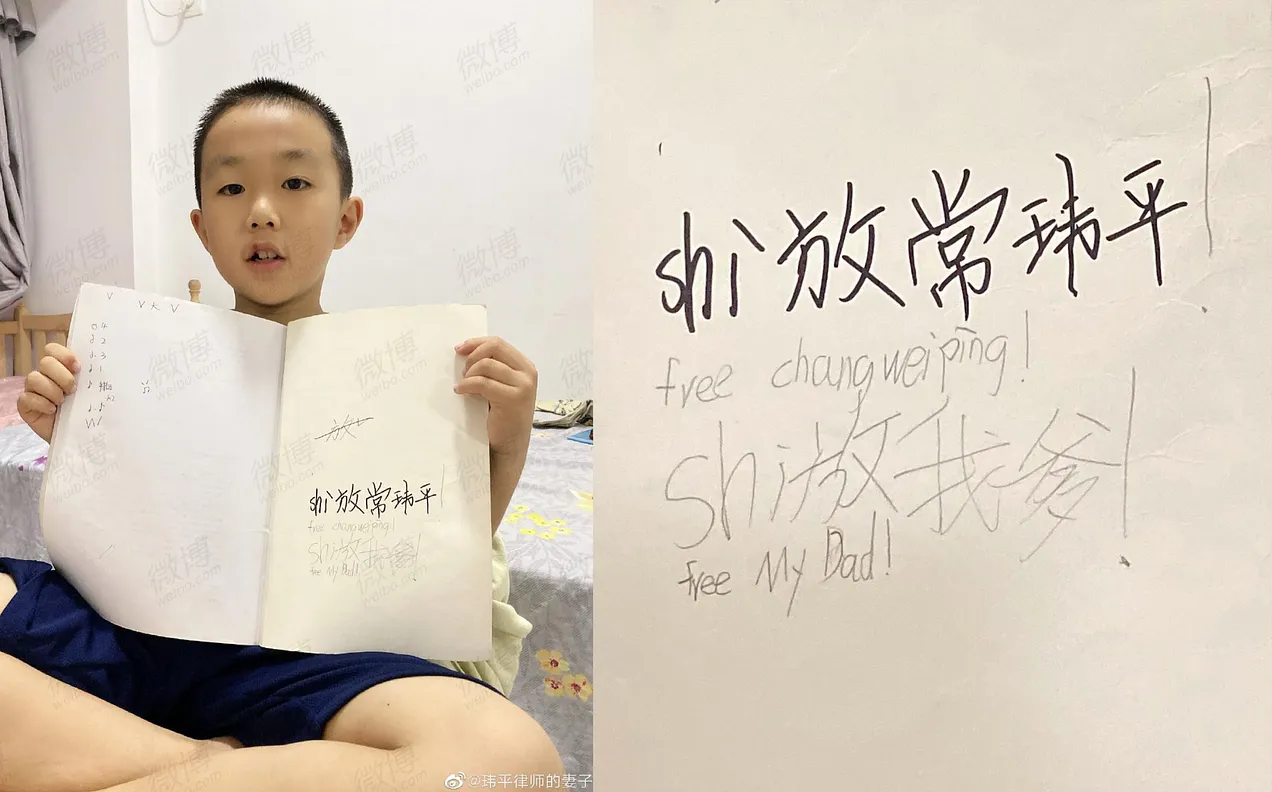 V V 大 V
4
2
3
1
放
shi放常玮平!
free changweiping!
shi放我爹!
free My Dad!
@玮平律师的妻子
shi放常玮平!
free changweiping!
shi放我爹!
free My Dad!
微博
weibo.com